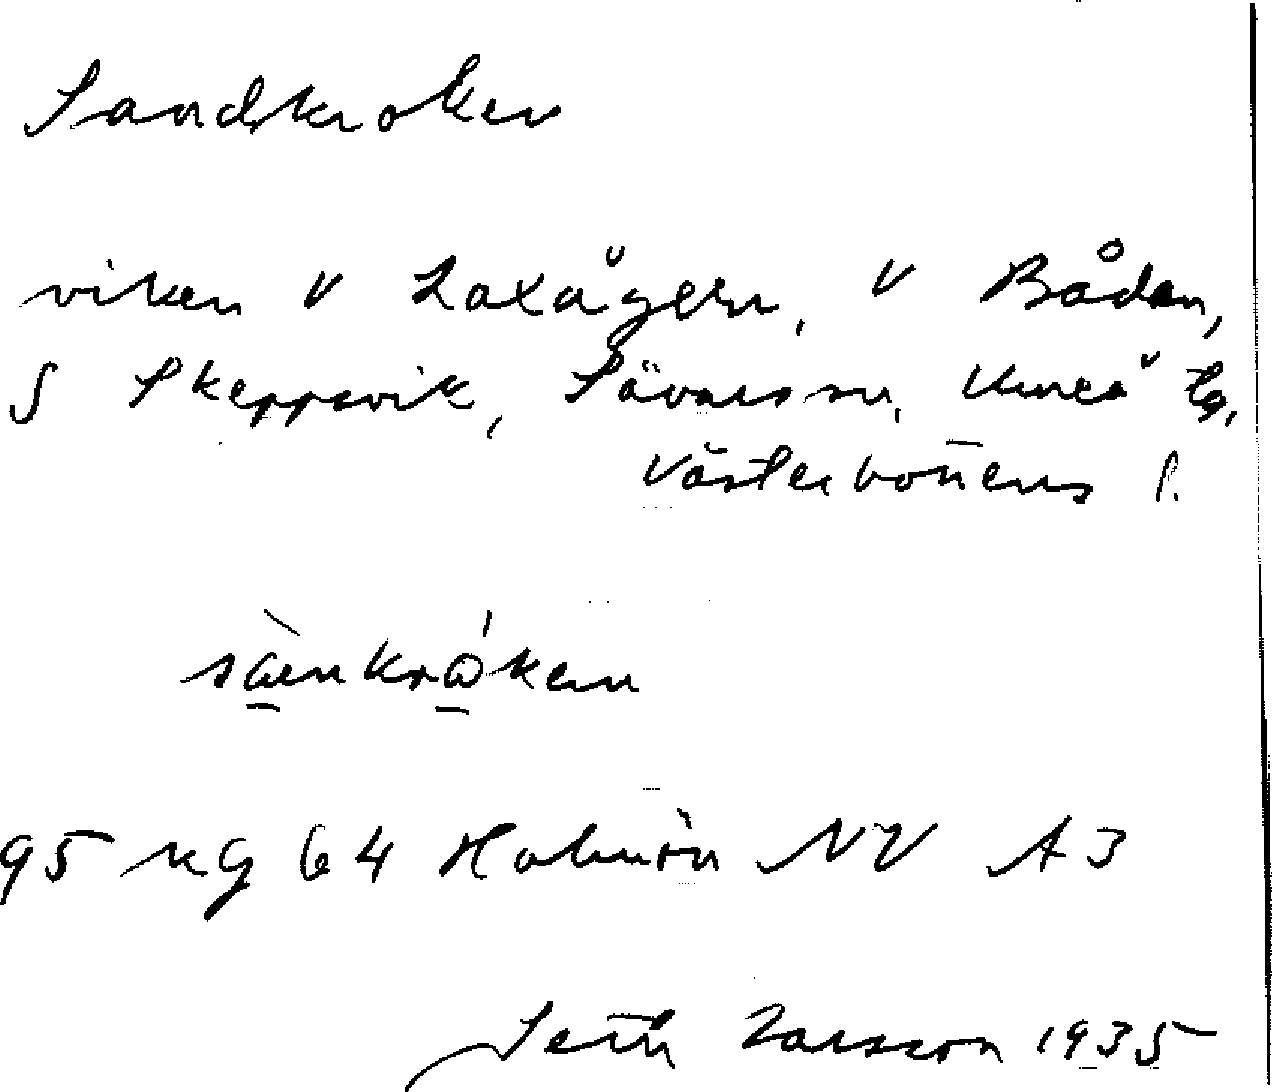 Sandkroken
viken V Laxögern, V Båden,
S Skeppsvik, Sävars sn, Umeå tg,
Västerbottens l.
sàenkrå'ken
95 kg 64 Holmön NV A3
Seth Larsson 1935